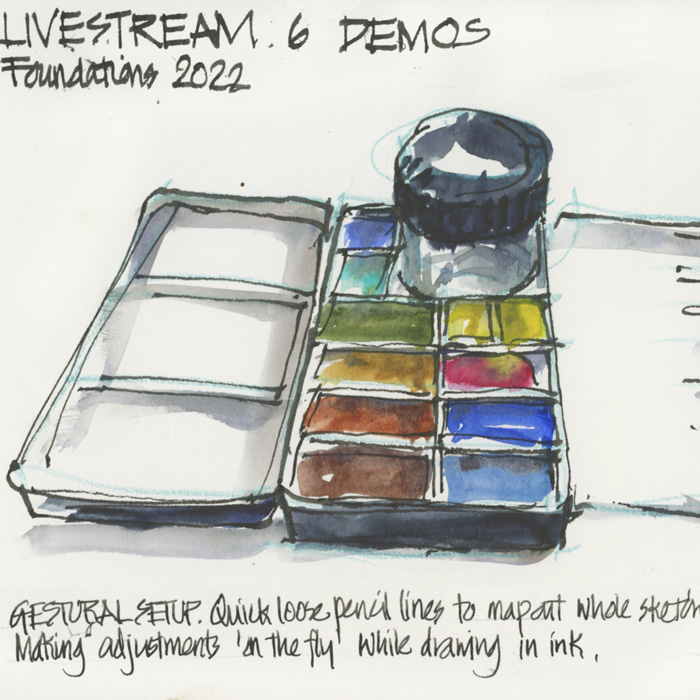 LIVESTREAM. 6 DEMOS
Foundations 2022
GESTURAL SETUP. Quick loose pencil lines to map out whole sketch
Making adjustments 'on the fly' while drawing in ink.